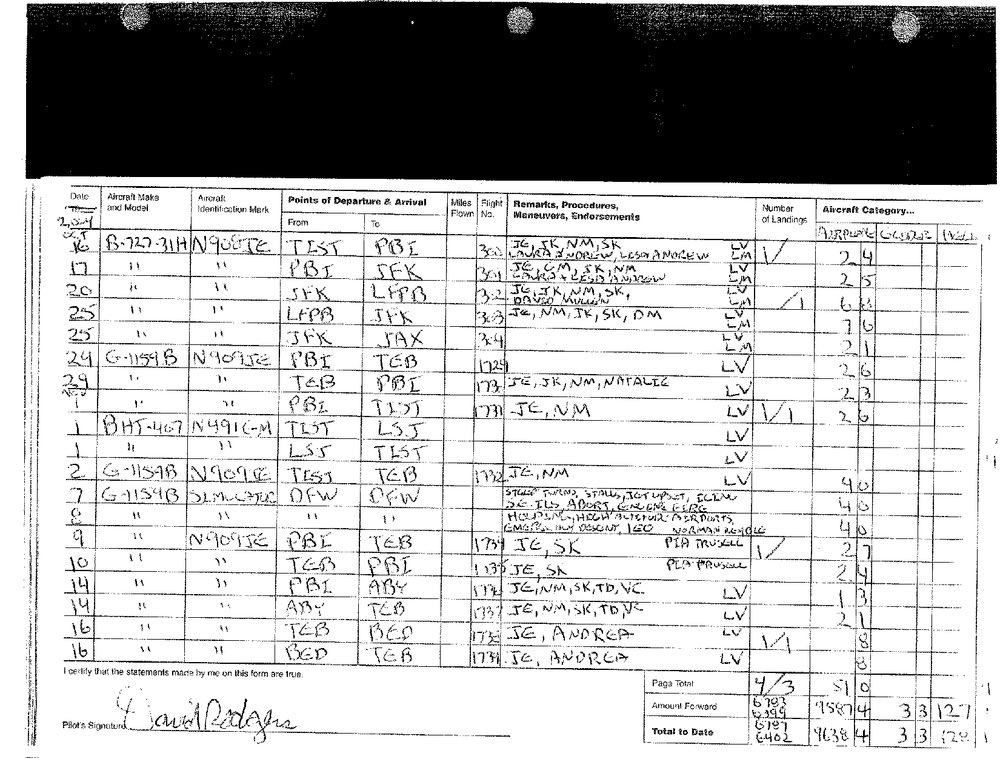 Date Aircraft Make and Model Aircraft Identification Mark Points of Departure & Arrival Miles Flown Flight No. Remarks, Procedures, Maneuvers, Endorsements Number of Landings Aircraft Category...
From To AIRPLANE GLIDER HELI
OCT
16 B-727-31H N908JE TIST PBI 300 JE, JK, NM, SK LV 1/ 2 4
LAURA ANDREW, LESA ANDREW LM
17 " " PBI JFK 301 JE, GM, SK, NM LV 2 5
LAURA + LESA ANDREW LM
20 " " JFK LFPB 302 JE, JK, NM, SK, LV /1 6 8
DAVID MULLEN LM
25 " " LFPB JFK 303 JE, NM, JK, SK, DM LV 7 6
LM
25 " " JFK JAX 304 LV 2 1
LM
24 G-1159B N909JE PBI TEB 1729 LV 2 6
29 " " TEB PBI 1730 JE, JK, NM, NATALIE LV 2 3
1 " " PBI TIST 1731 JE, NM LV 1/1 2 6
1 BHT-407 N491GM TIST LSJ LV
1 " " LSJ TIST LV
2 G-1159B N909JE TIST TEB 1732 JE, NM LV 4 0
7 G-1159B SIMULATOR DFW DFW STEEP TURNS, STALLS, JET UPSET, 4 0
S.E. ILS, ABORT, ENGINE FIRE
8 " " " " HOLDING, HIGH ALTITUDE AIRPORTS, 4 0
EMERGENCY DESCENT, NORMAN
9 " N909JE PBI TEB 1734 JE, SK PIA TRUSELL 1/ 2 7
10 " " TEB PBI 1735 JE, SK PIA TRUSELL 2 4
14 " " PBI ABY 1736 JE, NM, SK, TD, VC LV 1 3
14 " " ABY TEB 1737 JE, NM, SK, TD, VC LV 2 1
16 " " TEB BED 1738 JE, ANDREA LV 1/1 8
16 " " BED TEB 1739 JE, ANDREA LV 8
I certify that the statements made by me on this form are true.
Page Total 4/3 51 0
Amount Forward 6783 6399 9587 4 3 3 127 1
Pilot's Signature David Rodgers
Total to Date 6787 6402 9638 4 3 3 128 1